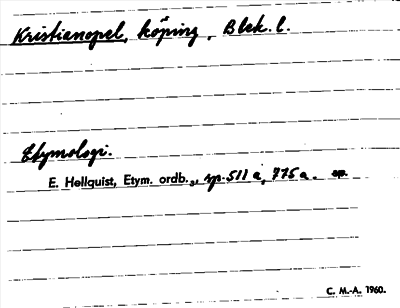 Kristianopel, köping, Blek. l.
Etymologi.
E. Hellquist, Etym. ordb.3, sp. 511 a, 775 a. sp.
C. M.-A. 1960.